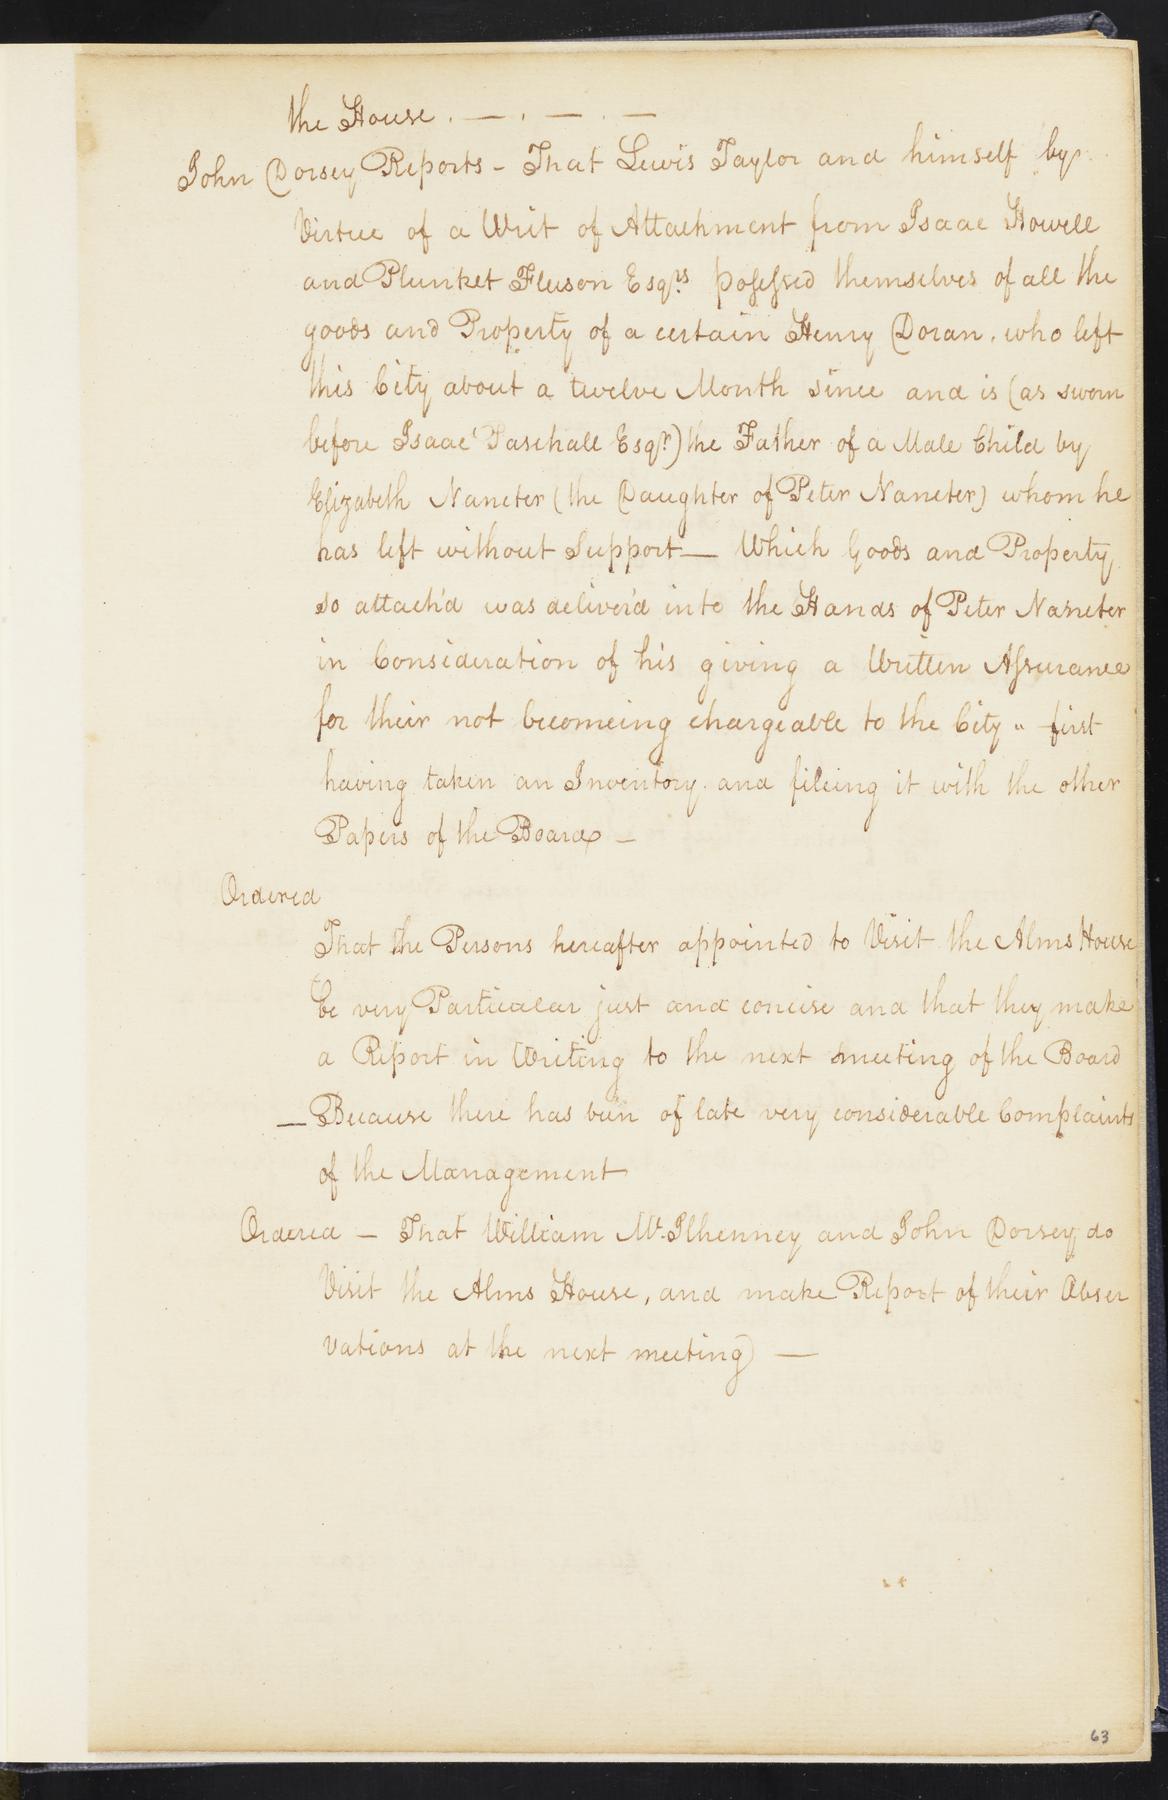 the House . — . — . —
John Dorsey Reports - That Lewis Taylor and himself by
Virtue of a Writ of Attachment from Isaac Howell
and Plunket Fleeson Esqrs possessed themselves of all the
goods and Property of a certain Henry Doran, who left
this City about a twelve Month since and is (as sworn
before Isaac Paschall Esqr.) the Father of a Male Child by
Elizabeth Naneter (the Daughter of Peter Naneter) whom he
has left without Support — Which Goods and Property
so attach'd was deliver'd into the Hands of Peter Naneter
in Consideration of his giving a Written Assurance
for their not becomeing chargeable to the City " first
having taken an Inventory and fileing it with the other
Papers of the Board —
Ordered
That the Persons hereafter appointed to Visit the Alms House
be very Particular just and concise and that they make
a Report in Writing to the next meeting of the Board
— Because there has been of late very considerable Complaints
of the Management
Ordered — That William Mc.Ilhenney and John Dorsey do
Visit the Alms House, and make Report of their Obser
vations at the next meeting —
63